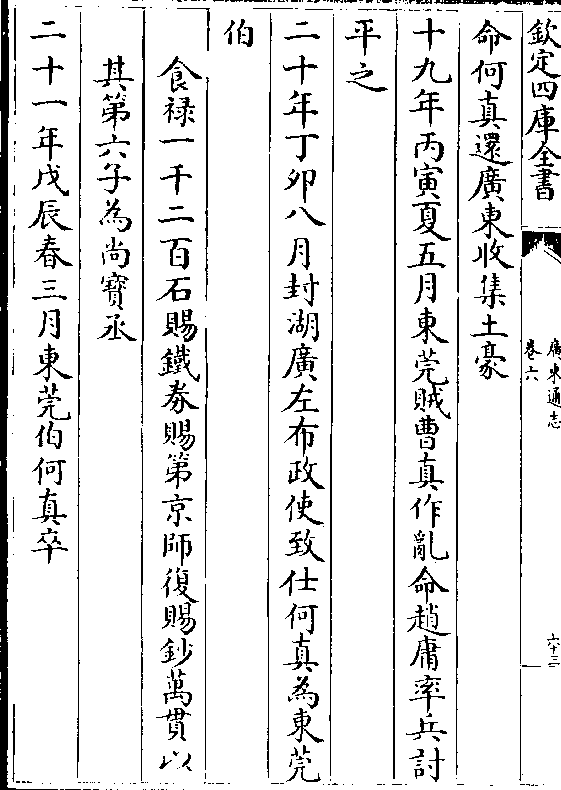 欽定四庫全書
廣東通志
卷六
六十三
命何真還廣東收集土豪
十九年丙寅夏五月東莞賊曹真作亂命趙庸率兵討
平之
二十年丁卯八月封湖廣左布政使致仕何真為東莞
伯
食禄一千二百石賜鐵券賜第京師復賜鈔萬貫以
其第六子為尚寳丞
二十一年戊辰春三月東莞伯何真卒